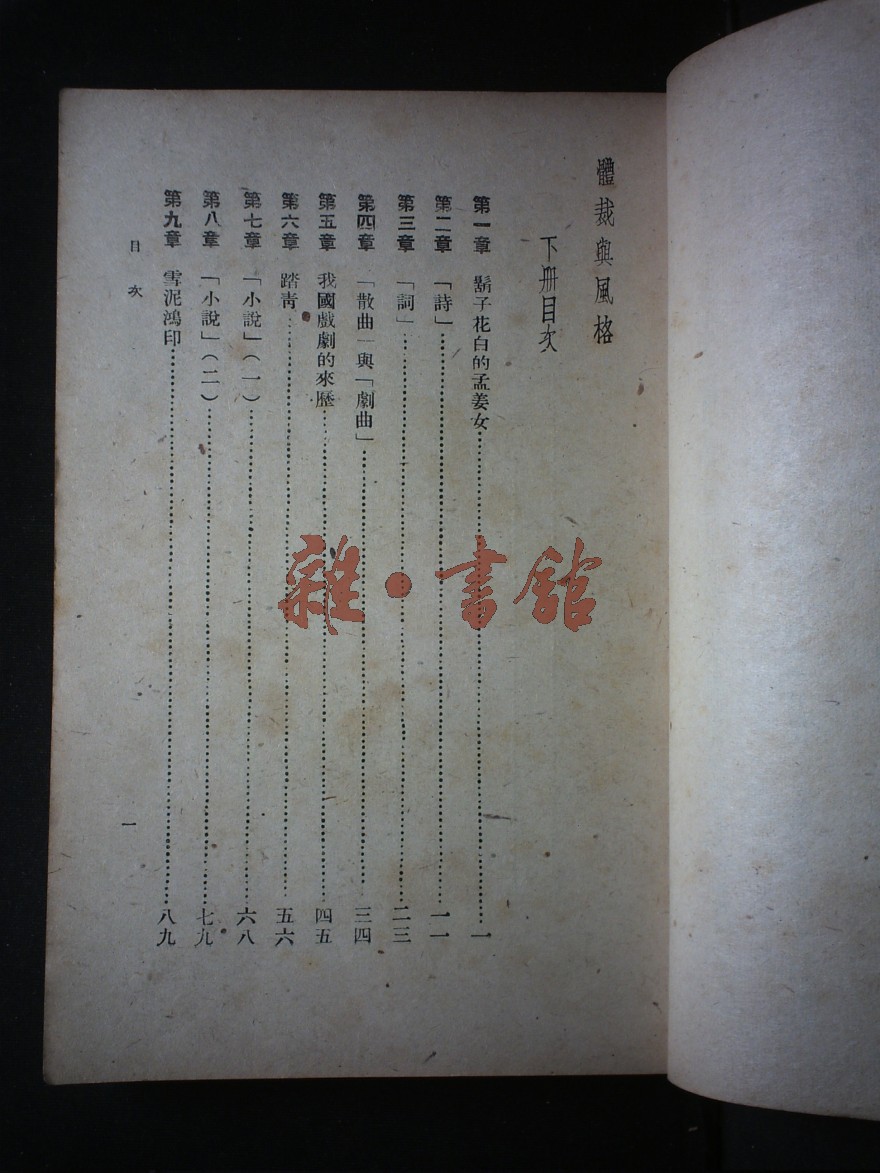 體裁與風格
下册目次
第一章 鬍子花白的孟姜女…………一
第二章 「詩」…………一一
第三章 「詞」…………二三
第四章 「散曲」與「劇曲」…………三四
第五章 我國戲劇的來歷…………四五
第六章 踏青…………五六
第七章 「小說」(一)…………六八
第八章 「小說」(二)…………七九
第九章 雪泥鴻印…………八九
目次
一
雜·書館